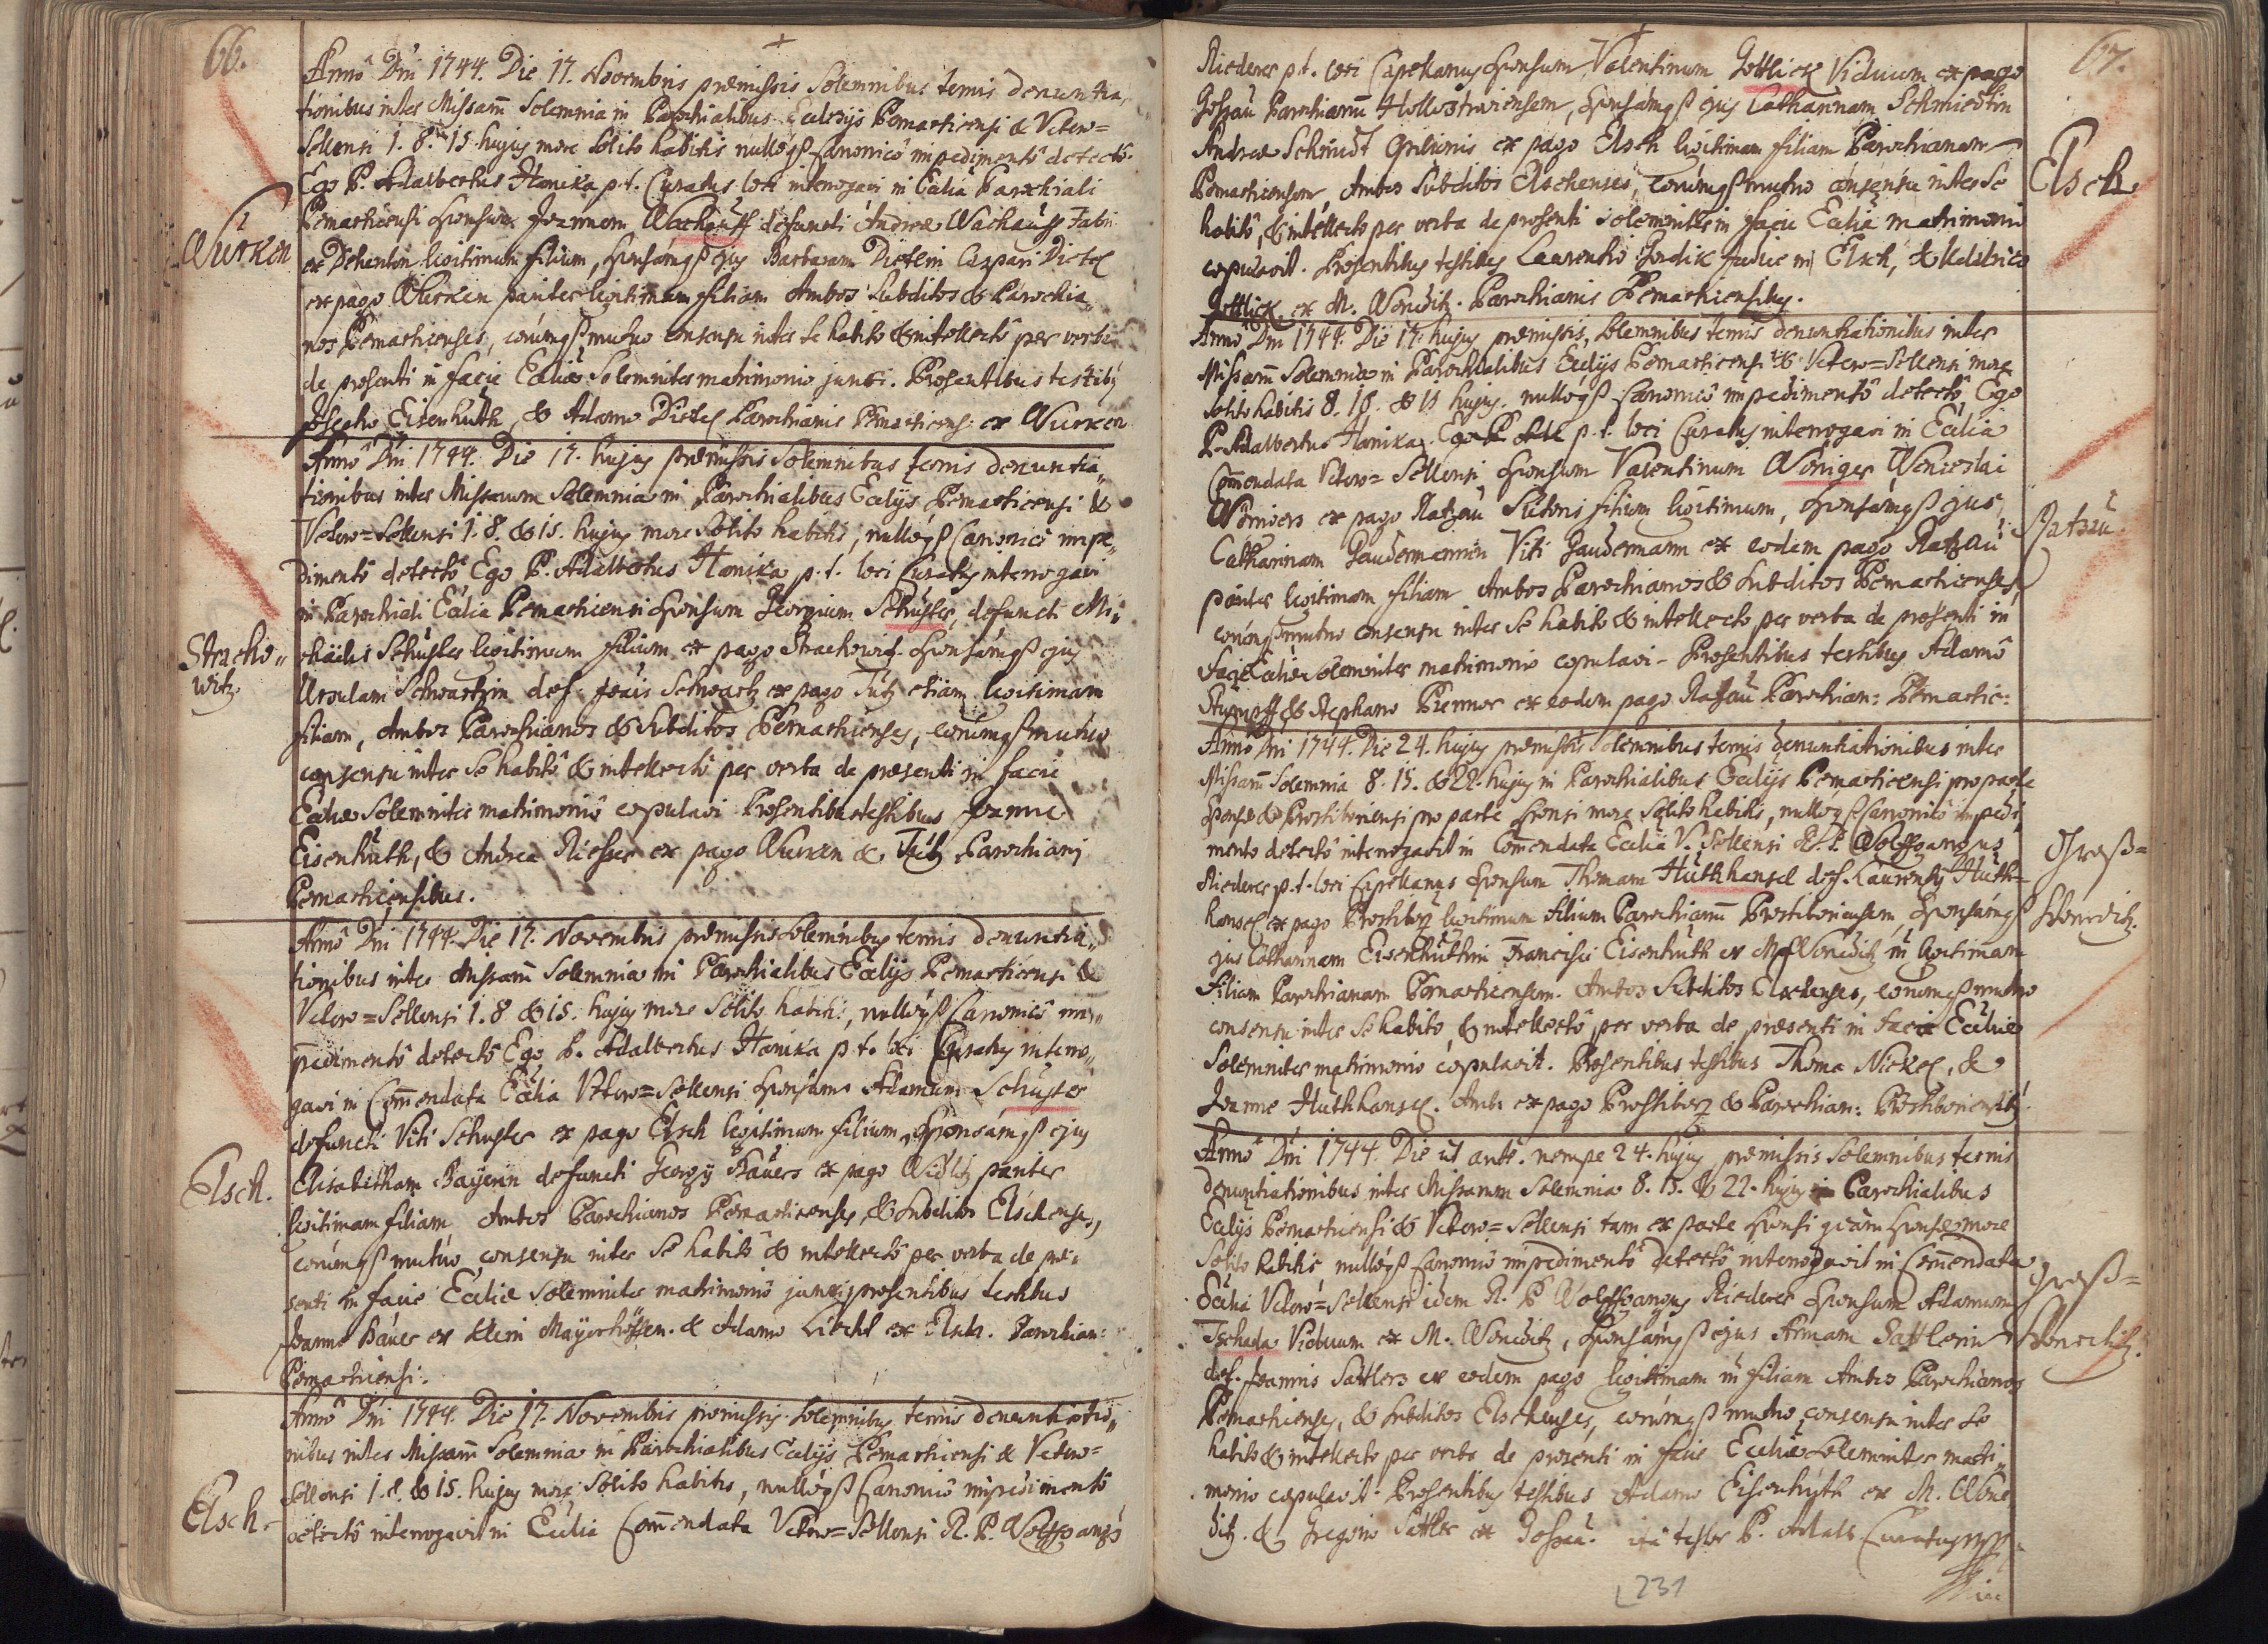 66.
Anno Dni 1744. Die 17. Novembris præmissis Solemnibus ternis denuntia„
tionibus inter Missarũ Solemnia in Parochialibus Eccleijs Pernarticensi & Vetero=
Sellensi 1. 8. 15 hujus more solito habitis nullóq3 Canonicô impedimentô detectô.
Ego P. Adalbertus Hanika p.t. Curatus loci interrogavi in Ecclia Parochiali
Pernarticensi Sponsum Joannem Wachauff defuncti Andreæ Wachauff Fabri
Würken
ex legitimum filium, Sponsámq3 ejus Barbaram Dietlin Caspari Dietl
ex pago Wurken pariter legitimam filiam Ambos Subditos & Parochia„
nos Pernarticenses, eorúmq3 mutuo consensu inter se habito & intellectô per verba
de præsenti in facie Eccliæ Solemniter matrimonio junxi. Præsentibus testibus
Josepho Eisenhuth, & Adamo Dietl Parochianis Pernarticens: ex Wurken
Anno Dni 1744. Die 17. hujus præmissis Solemnibus ternis denuntia„
tionibus inter Missarum Solemnia in Parochialibus Ecclijs Pernarticensi &
Vetero=Sellensi 1. 8. & 15. hujus more solito habitis, nullóq3 Canonicô impe„
dimentô detectô Ego P. Adalbertus Hanika p.t. loci Curatus interrogavi
in Parochiali Ecclia Pernarticensi Sponsum Georgium Schuster, defuncti Mi„
Stracho„
witz.
chaëlis Schuster legitimum filium ex pago Strachowitz Sponsámq3 ejus
Ursulam Schwartzin def. Joãis Schwartz ex pago Tütz etiam legitimam
filiam, Ambos Parochianos & Subditos Pernarticenses, eorúmq3 mutuo
consensu inter se habitô & intellectô per verba de præsenti in facie
Eccliæ Solemniter matrimoniô copulavi Præsentibus testibus Joanne
Eisenhuth, & Andrea Riesser ex pago Wurken & Tütz Parochianis
Pernarticensibus.
Anno Dni 1744. Die 17. Novembris præmissis Solemnibus ternis denuntia„
tionibus inter Missarũ Solemnia in Parochialibus Ecclijs Pernarticensi &
Vetero=Sellensi 1. 8 & 15. hujus more solito habitis, nullóq3 Canonicô im„
pedimentô detectô Ego P. Adalbertus Hanika p.t. loci Curatus interro„
gavi in Com̃endata Ecclia Vetero=Sellensi Sponsum Adamum Schuster
defuncti Viti Schuster ex pago Elsch legitimum filium, Sponsámq3 ejus
Elsch.
Elisabetham Bayerin defuncti Georgij Bäuers ex pago Widlitz pariter
legitimam filiam Ambos Parochianos Pernarticenses, & Subditos Elschenses,
eorúmq3 mutuo consensu inter se habitô & intellectô per verba de præ„
senti in facie Eccliæ Solemniter matrimoniô junxi præsentibus testibus
Joanne Bäuer ex Klein Mayerhöffen. & Adamo Liechtl ex Elsch. Parochian:
Pernarticensi:
Anno Dni 1744. Die 17. Novembris præmissis Solemnibus ternis denuntiatio„
nibus inter Missarũ Solemnia in Parochialibus Ecclijs Pernarticensi & Vetero=
Elsch.
Sellensi 1. 8. & 15. hujus more solito habitis, nullóq3 Canonicô impedimentô
detectô interrogavit in Ecclia Com̃endata Vetero=Sellensi R. P. Wolffgangus
67.
Riederer p.t. loci Capellanus Sponsum Valentinum Gottlick Viduum ex pago
Gossau Parochianũ Hollostriviensem, Sponsámq3 ejus Catharinam Schmiedtin
Andreæ Schmidt ex pago Elsch legitimam filiam Parochianam
Elsch.
Pernarticensem, Ambos Subditos Elschenses, eorúmq3 mutuo consensu inter se
habitô, & intellecto per verba de præsenti solemniter in facie Eccliæ matrimonio
copulavit. Præsentibus testibus Laurentio Judice in Elsch, & Udalrico
Gottlick ex M. Wonditz. Parochianis Pernarticensibus.
Anno Dni 1744. Die 17. hujus præmissis, Solemnibus ternis denuntiationibus inter
Missarũ Solemnia in Parochialibus Ecclijs Pernarticensi & Vetero=Sellensi more
solito habitis 8. & 15 hujus. nullóq3 Canonicô impedimentô detectô Ego
P. Adalbertus Hanika p.t. loci Curatus interrogavi in Ecclia
Com̃endata Vetero=Sellensi Sponsum Valentinum Wöniger Wenceslai
Ratzau.
Wönigers ex pago Ratzau Sutoris filium legitimum, Sponsámq3 ejus
Catharinam Gaudermannin Viti Gaudermann ex eodem pago Ratzau
pariter legitimam filiam Ambos Parochianos & Subditos Pernarticenses,
eorúmq3 mutuo consensu inter se habito & intellecto per verba de præsenti in
facie Eccliæ Solemniter matrimonio copulavi. Præsentibus testibus Adamô
Stumpff, & Stephano Prenner ex eodem pago Ratzau Parochian: Pernartic:
Anno Dni 1744. Die 24. hujus præmissis Solemnibus ternis denuntiationibus inter
Missarũ Solemnia 8. 15. & 22. hujus in Parochialibus Ecclijs Pernarticensi pro parte
Sponsæ & Prostiboriensi pro parte Sponsi more solito habitis, nullóq3 Canonicô impedi„
mento detectô interrogavit in Com̃endata Ecclia V. Sellensi R. P. Wolffgangus
Groß=
Wonditz.
Riederer p.t. loci Capellanus Sponsum Thomam Huthhansel def. Laurentij Huth=
hansel ex pago Prostiborz legitimum filium Parochianũ Prostiboriensem, Sponsámq3
ejus Catharinam Eisenhuthin Francisci Eisenhuth ex M. Wonditz legitimam
filiam Parochianam Pernarticensem. Ambos Subditos Elschenses, eorúmq3 mutuo
consensu inter se habito, & intellectô per verba de præsenti in facie Eccliæ
Solemniter matrimonio copulavit. Præsentibus testibus Thoma Nickel, &
Joanne Huthhansel. Amb: ex pago Prostiborz & Parochian: Prostiboriensib:
Anno Dni 1744. Die ut ante. nempe 24. hujus præmissis Solemnibus ternis
denuntiationibus inter Missarum Solemnia 8. 15. & 22. hujus in Parochialibus
Ecclijs Pernarticensi & Vetero=Sellensi tam ex parte Sponsi quàm Sponsæ more
solito habitis nullóq3 Canonicô impedimentô detectô interrogavit in Com̃endata
Groß=
Wonditz.
Ecclia Vetero=Sellensi idem R. P Wolffgangus Riederer Sponsum Adamum
Tschada Viduum ex M. Wonditz, Sponsámq3 ejus Annam Sattlerin
def. Joannis Sattlers ex eodem pago legitimam filiam Ambos Parochianos
Pernarticenses, & Subditos Elschenses, eorúmq3 mutuo consensu inter se
habito & intellecto per verba de præsenti in facie Eccliæ Solemniter matri„
monio copulavit. Præsentibus testibus Adamo Eisenhuth ex M. Won
ditz. & Gregorio Sattler ex Gossau. ità testor P. Adalb. Curatus
231